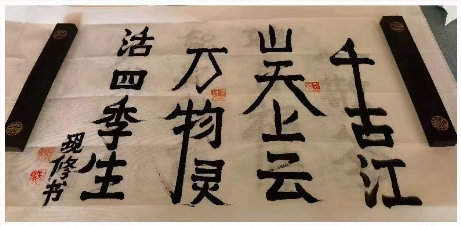 千古江
山天上云
万物灵
活四季生
现修书